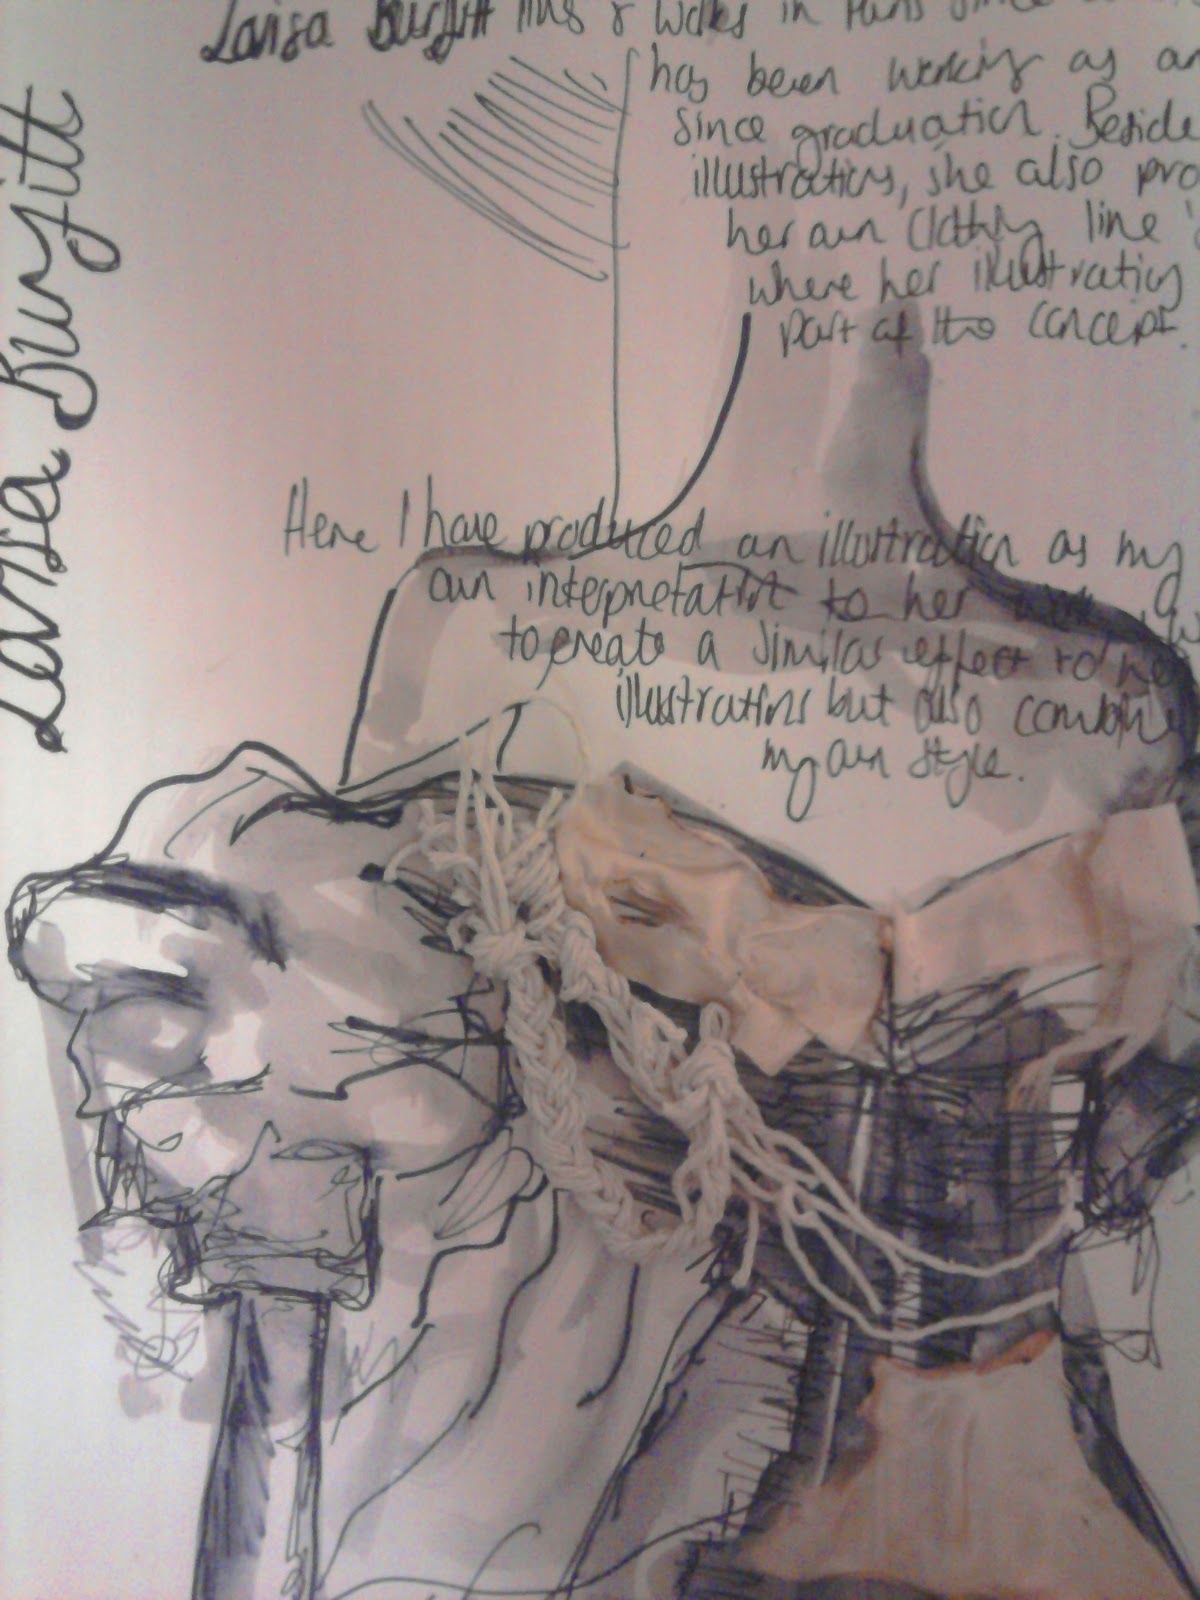 Lovisa Burfitt
Lovisa Burfitt lives & works in Paris since
has been working as an
since graduation. Beside
illustrations, she also pro
her own clothing line
where her illustrations
part of the concept.
Here I have produced an illustration as my
own interpretation to her work,
to create a similar effect to her
illustrations but also combin
my own style.